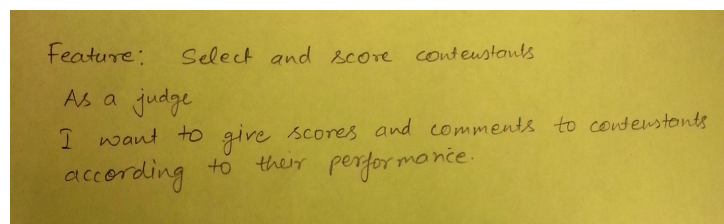 Feature: Select and score contenstants
As a judge
I want to give scores and comments to contenstants
according to their performance.